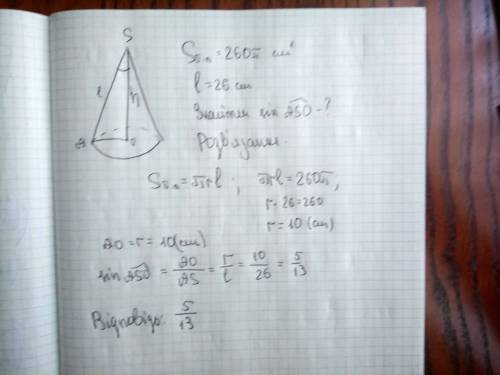 S
l
h
A
O
Sб.п = 260π cm²
l = 26 cm
Знайти sin ∠ASO - ?
Розв'язання.
Sб.п = πrl ; πrl = 260π,
r · 26 = 260
r = 10 (cm)
AO = r = 10 (cm)
sin ∠ASO = AO/AS = r/l = 10/26 = 5/13
Відповідь: 5/13